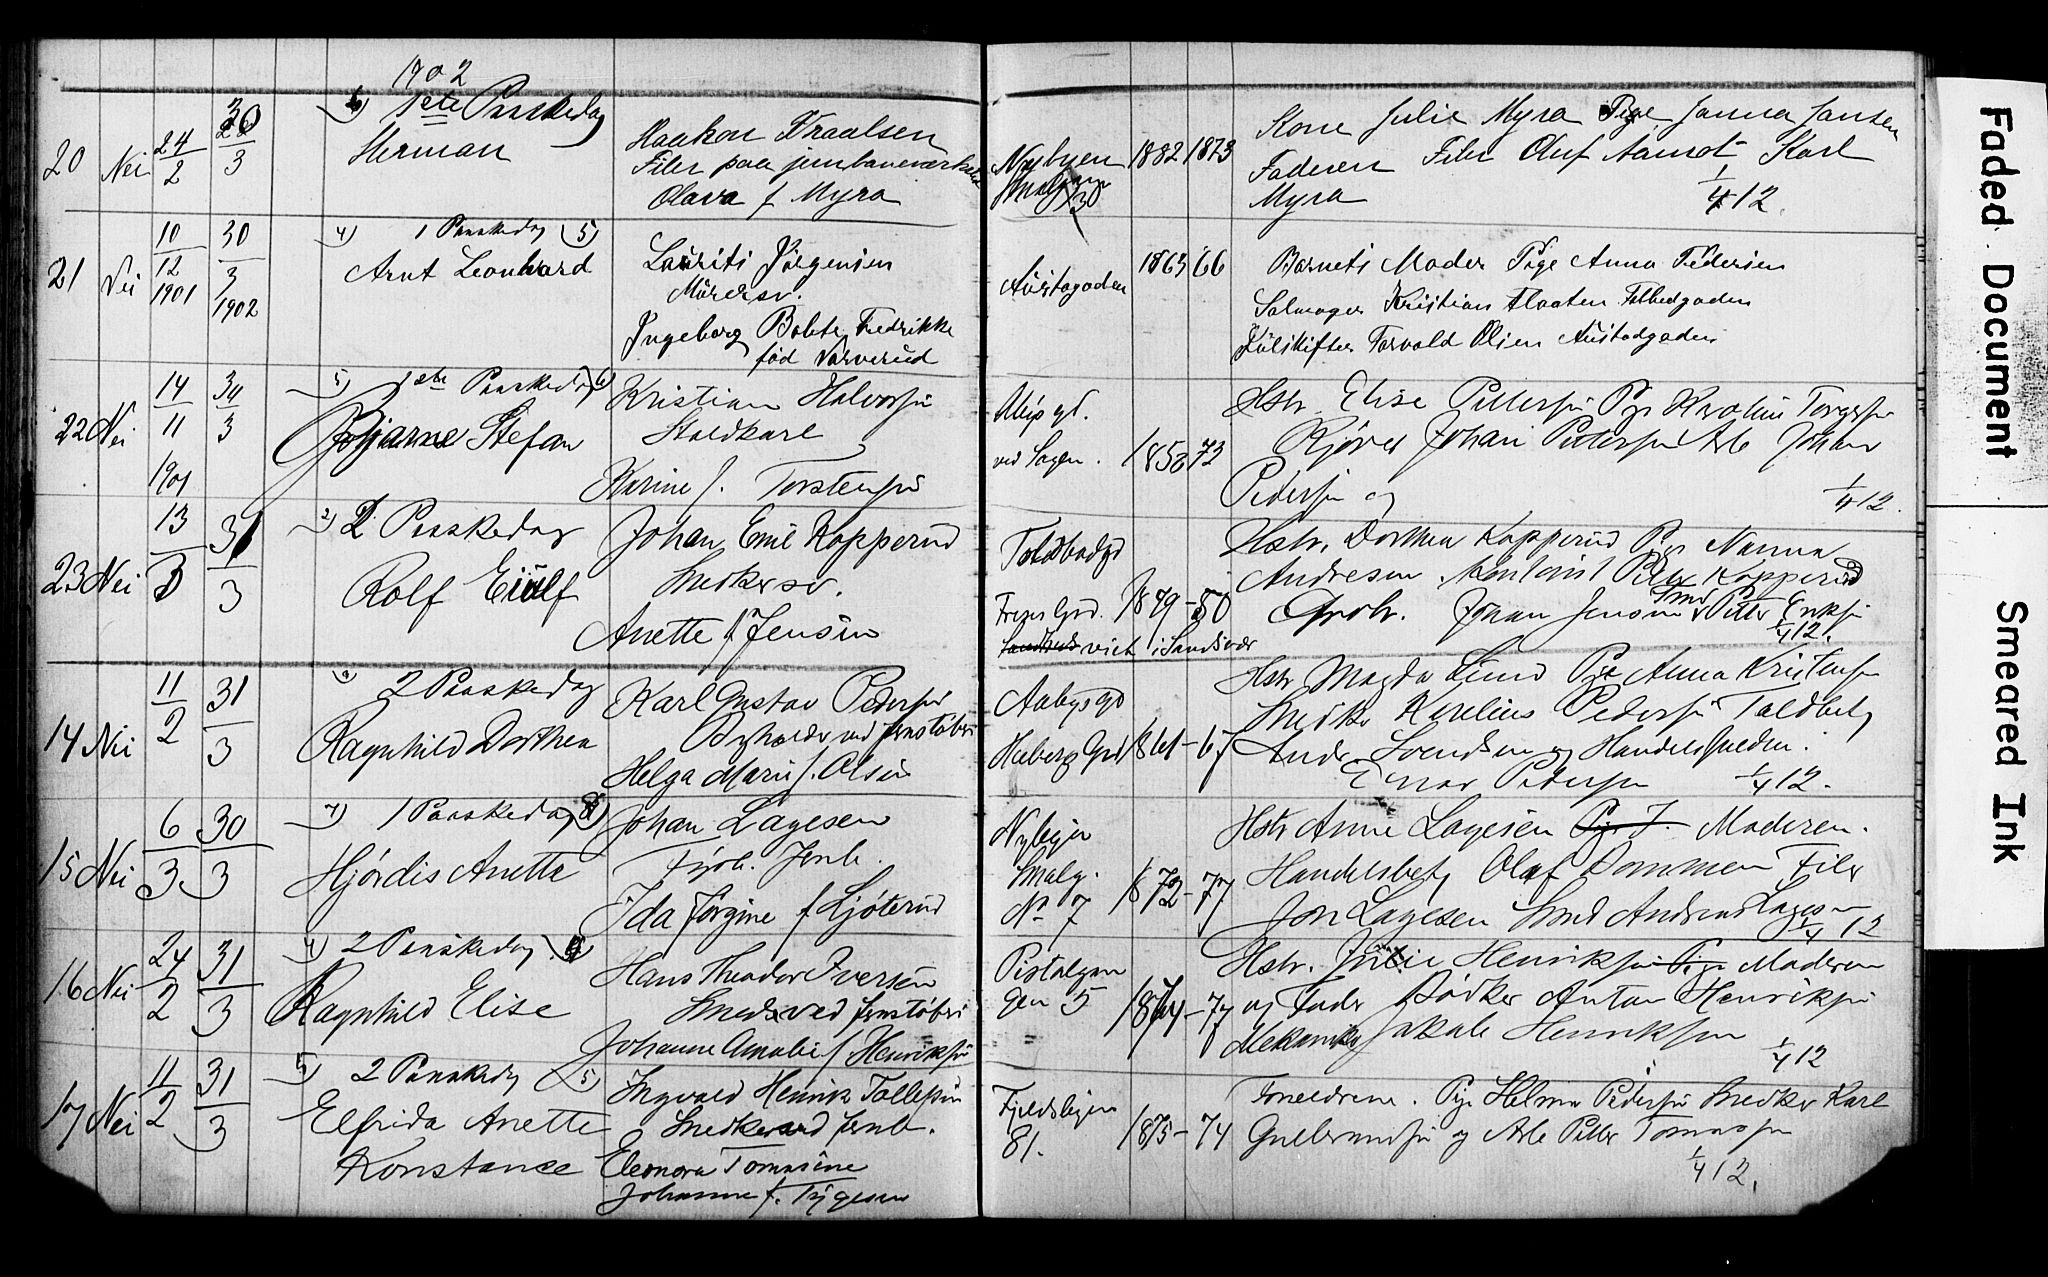 1902
20 Nei 24/2 30/3 6) 1ste Paaskedag
Herman
Haakon Traalsen
Filer paa jernbaneværkst
Olava f Myra
Nybyen
Smalgan
30
1882 1873
Kone Julie Myra Pige Janna Jansen
Faderen Filer Oluf Aamot Karl
Myra 1/4 12.
21 Nei 10/12 1901 30/3 1902 4) 1 Paaskedag (5)
Arnt Leonhard
Laurits Jørgensen
Murersv.
Ingeborg Bolete Fredrikke
fød Narverud
Austagaden
1863 66
Barnets Moder Pige Anna Pedersen
Salmager Kristian Flaaten
Torvald Olsen Austadgaden
22 Nei 14/11 1901 30/3 5) 1ste Paaskedag 6)
Bjarne Stefan
Kristian Halvorsen
Staldkarl
Karine f. Torstensen
ved Sagen. 1852 73
Hstr. Elise Pettersen Pige Karoline Torgersen
Johan Pettersen Arb Johan
Pedersen og 1/4 12.
23 Nei 13/3 31/3 2) 2 Paaskedag
Rolf Eiulf
Johan Emil Kopperud
Snedkersv.
Anette f Jensen
Toldbodgd
1849-50
viet i Sandsvær
Hstr. Dorthea Kopperud Pige Nanna
Andresen. Peder Kopperud
Grobr. Johan Jensen Smed Petter Eriksen
1/4 12.
14 Nei 11/2 31/3 2 Paaskedag
Ragnhild Dorthea
Karl Gustav Pedersen
ved Jernstøberi
Helga Marie f. Olsen
Aabygd
Heibergs Grd 1861-67
Hstr Magda Lund Pige Anna Kristensen
Snedker Karelius Pedersen Toldbetj
Andr. Svendsen og Handelsfuldm.
Einar Pedersen 1/4 12.
15 Nei 6/3 30/3 7) 1 Paaskedag 8)
Hjørdis Anette
Johan Lagesen
Fyrb. Jernb.
Ida Jørgine f Ljøterud
Nybyen
Smalg.
No 7
1872-77
Hstr Anne Lagesen Pige J. Moderen.
Handelsbetj Olaf Dommen Filer
Jon Lagesen Smed Andreas Lagesen
1/4 12
16 Nei 24/2 31/3 4) 2 Paaskedag. 4)
Ragnhild Elise
Hans Theodor Iversen
Smed ved Jernstøberi
Johanne Amalie f Henriksen
Pistolgan
gen 5
1874-77
Hstr. Julie Henriksen Pige Moderen
og Fader Bødker Anton Henriksen
Mekaniker Jakob Henriksen
1/4 12
17 Nei 11/2 31/3 5) 2 Paaskedag (5)
Elfrida Anette
Konstance
Ingvald Henrik Tollefsen
Snedker ved Jernb.
Eleonora Tomasine
Johanne f. Tygesen
Fjeldsbyen
81.
1875-74
Foreldrene. Pige Helma Pedersen Snedker Karl
Gulbrandsen og Arb Petter Tomassen
1/4 12.
Faded Document
Smeared Ink